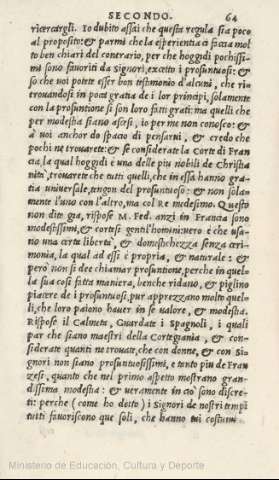 SECONDO. 64
ricercargli. Io dubito assai che questa regula sia poco
al proposito: & parmi che la esperientia ci faccia mol
to ben chiari del contrario, per che hoggidi pochissi-
mi sono fauoriti da signori, excetto i prosuntuosi: &
so che uoi potete esser bon testimonio d'alcuni, che ri-
trouandosi in poca gratia de i lor principi, solamente
con la prosuntione si son loro fatti grati: ma quelli che
per modestia siano ascesi, io per me non conosco: &
à uoi anchor do spacio di pensarui, & credo che
pochi ne trouarete: & se considerate la Corte di Fran
cia, la qual hoggidi è una delle piu nobili de Christia
nità, trouarete che tutti quelli, che in essa hanno gra-
tia uniuersale, tengon del prosuntuoso: & non sola-
mente l'uno con l'altro, ma col Re medesimo. Questo
non dite gia, rispose M. Fed. anzi in Francia sono
modestissimi, & cortesi gentil'homini: uero è che usa-
no una certa libertà, & domestichezza senza ceri-
monia, la qual ad essi è propria, & naturale: &
però non si dee chiamar prosuntione, perche in quel-
la sua cosi fatta maniera, benche ridano, & piglino
piacere de i prosuntuosi, pur apprezzano molto quel-
li, che loro paiono hauer in se ualore, & modestia.
Rispose il Calmeta, Guardate i Spagnoli, i quali
par che siano maestri della Cortegiania, & con-
siderate quanti ne trouate, che con donne, & con Si-
gnori non siano prosuntuosissimi, e tanto piu de Fran
zesi, quanto che nel primo aspetto mostrano gran-
dissima modestia: & ueramente in ciò sono discre-
ti: perche (come ho detto) i Signori de nostri tempi
tutti fauoriscono que soli, che hanno tai costumi.
Ministerio de Educación, Cultura y Deporte